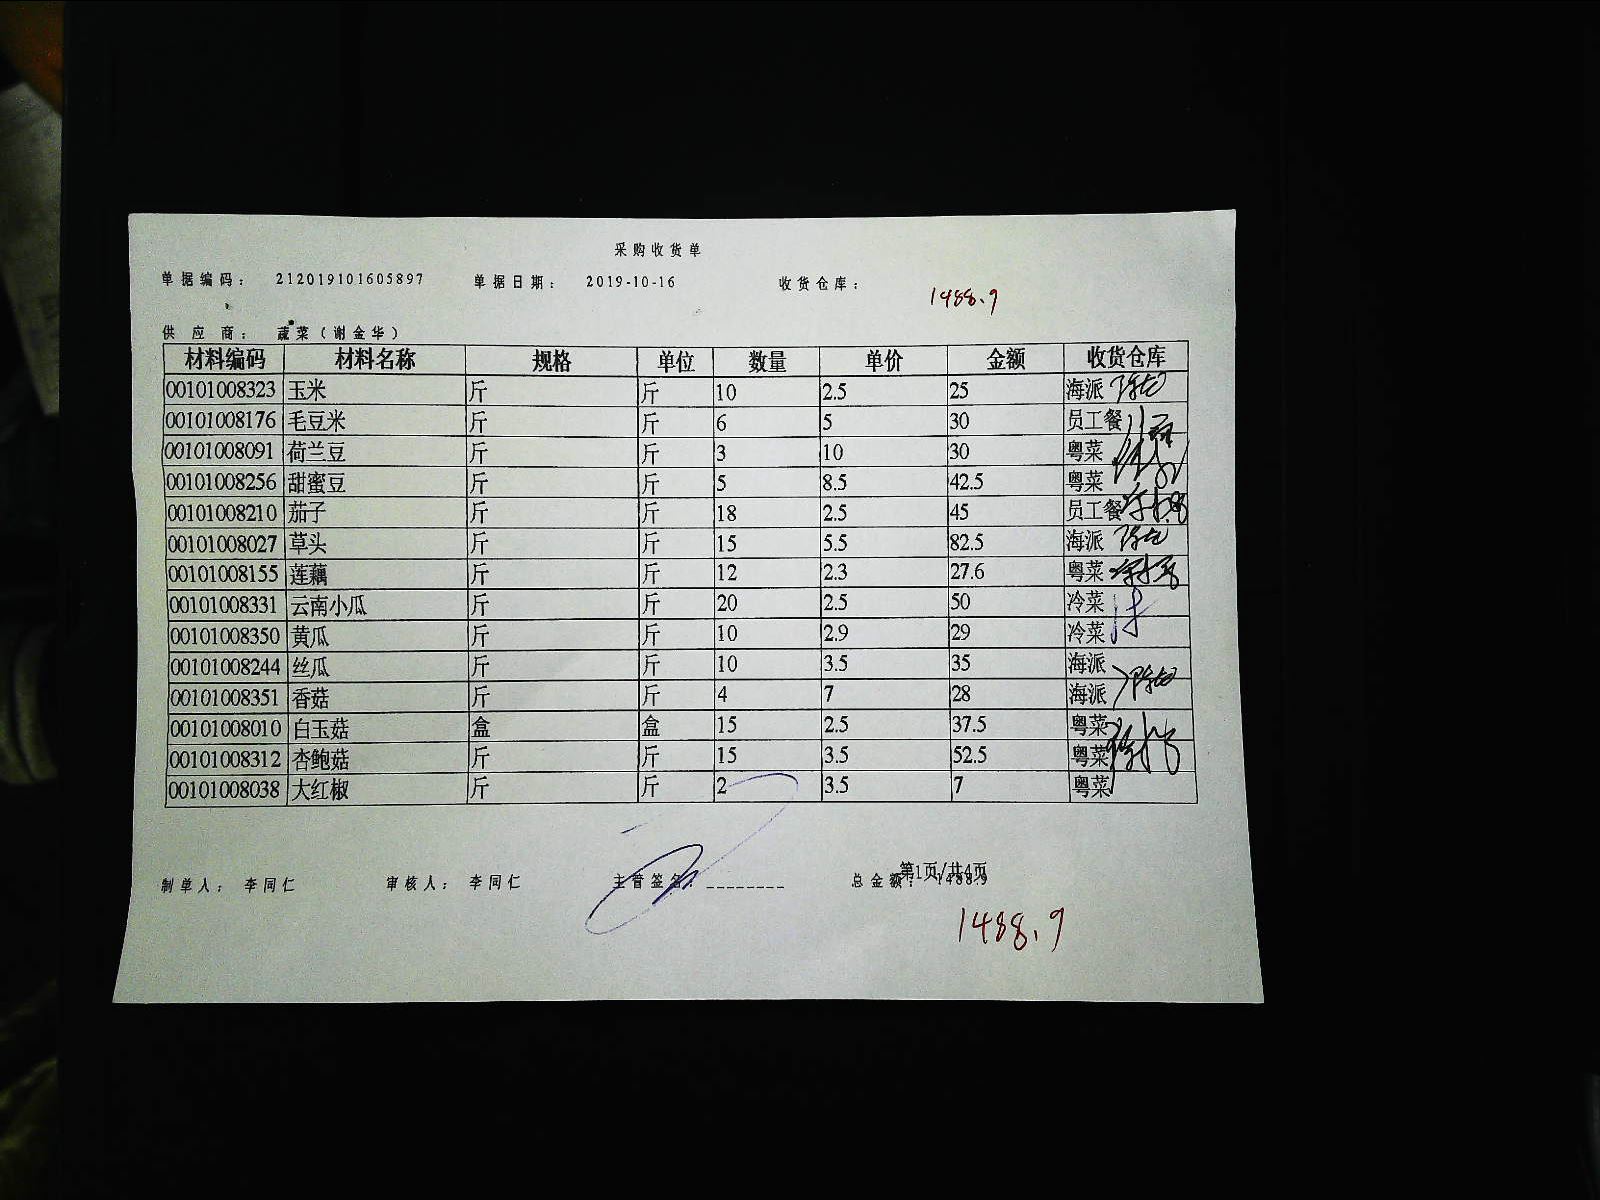 采购收货单
单据编码： 212019101605897 单据日期： 2019-10-16 收货仓库：
1488.9
供应商： 蔬菜（谢金华）
材料编码 材料名称 规格 单位 数量 单价 金额 收货仓库
00101008323 玉米 斤 斤 10 2.5 25 海派
00101008176 毛豆米 斤 斤 6 5 30 员工餐
00101008091 荷兰豆 斤 斤 3 10 30 粤菜
00101008256 甜蜜豆 斤 斤 5 8.5 42.5 粤菜
00101008210 茄子 斤 斤 18 2.5 45 员工餐
00101008027 草头 斤 斤 15 5.5 82.5 海派
00101008155 莲藕 斤 斤 12 2.3 27.6 粤菜
00101008331 云南小瓜 斤 斤 20 2.5 50 冷菜
00101008350 黄瓜 斤 斤 10 2.9 29 冷菜
00101008244 丝瓜 斤 斤 10 3.5 35 海派
00101008351 香菇 斤 斤 4 7 28 海派
00101008010 白玉菇 盒 盒 15 2.5 37.5 粤菜
00101008312 杏鲍菇 斤 斤 15 3.5 52.5 粤菜
00101008038 大红椒 斤 斤 2 3.5 7 粤菜
第1页/共4页
制单人： 李同仁 审核人： 李同仁 主管签名：________ 总金额： 1488.9
1488.9